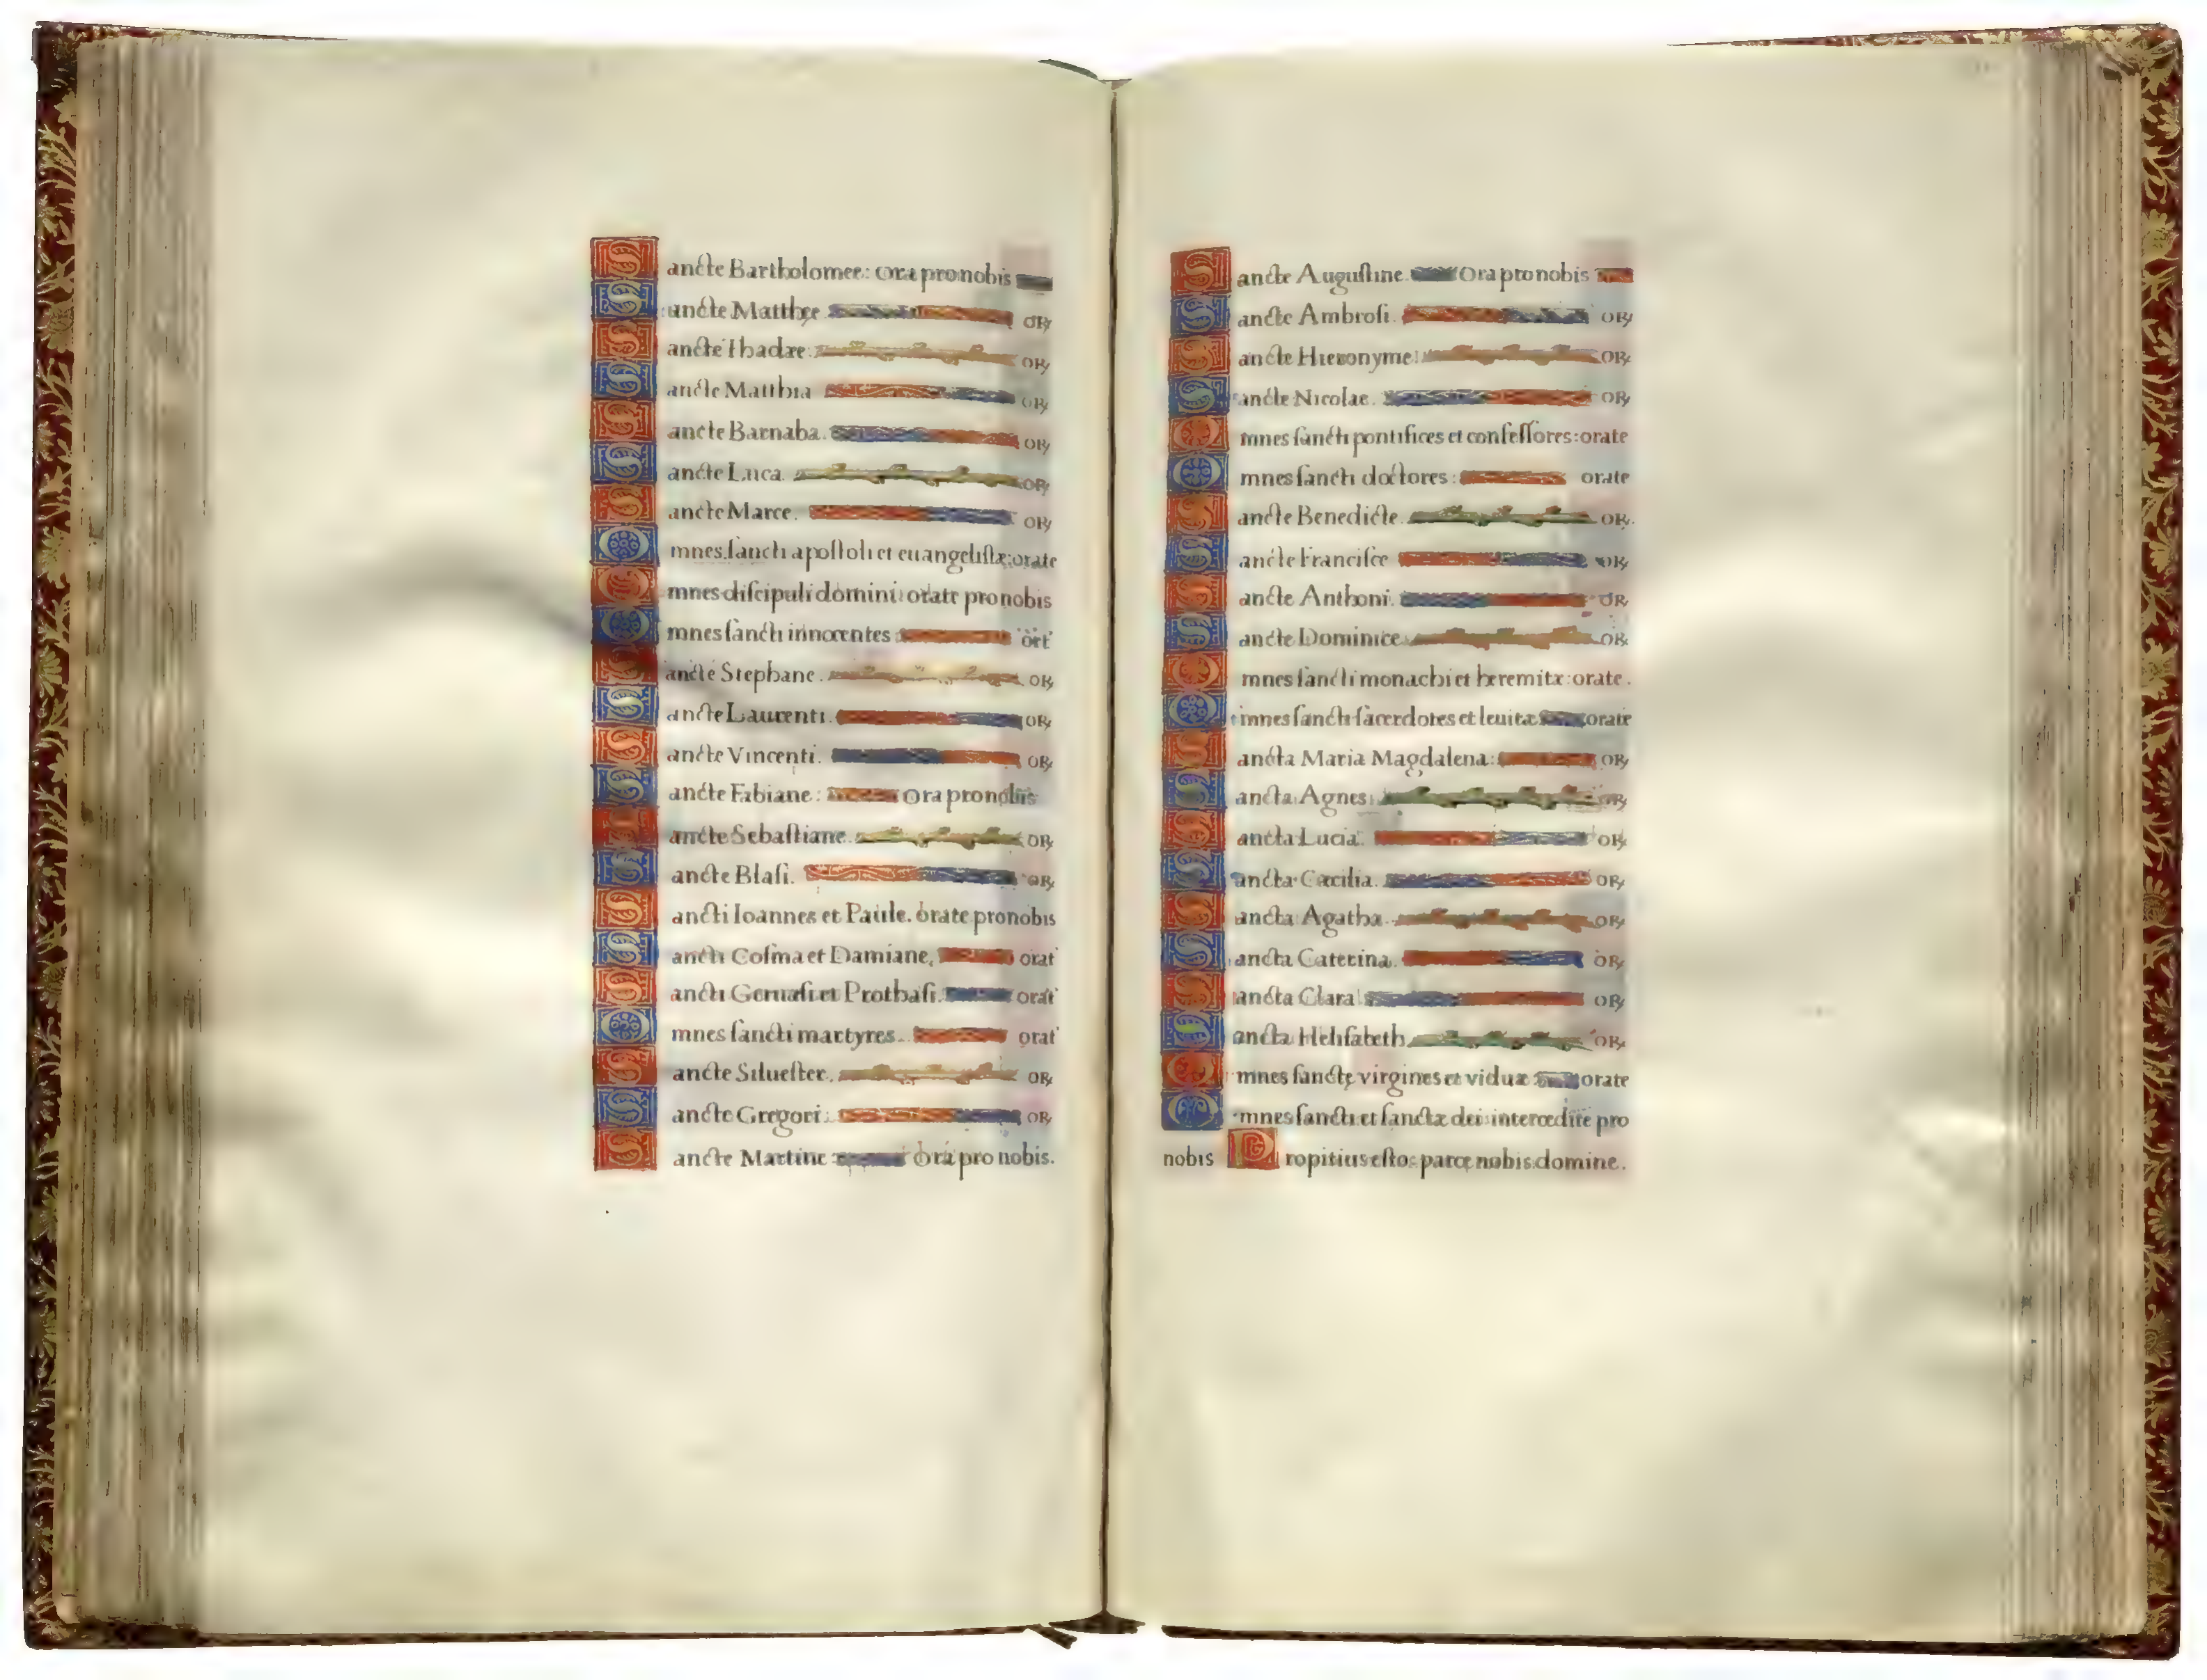 Sancte Bartholomee: Ora pro nobis
Sancte Matthęe OR
Sancte Thadæe: OR
Sancte Matthia OR
Sancte Barnaba. OR
Sancte Luca. OR
Sancte Marce. OR
Omnes sancti apostoli et euangelistæ: orate
Omnes discipuli domini: orate pro nobis
Omnes sancti innocentes ort
Sancte Stephane. OR
Sancte Laurenti. OR
Sancte Vincenti. OR
Sancte Fabiane: Ora pro nobis
Sancte Sebastiane. OR
Sancte Blasi. OR
Sancti Ioannes et Paule. orate pro nobis
Sancti Cosma et Damiane. orat
Sancti Geruasi et Prothasi. orat
Omnes sancti martyres. orat
Sancte Siluester. OR
Sancte Gregori. OR
Sancte Martine Ora pro nobis.
Sancte Augustine. Ora pro nobis
Sancte Ambrosi. OR
Sancte Hieronyme: OR
Sancte Nicolae. OR
Omnes sancti pontifices et confessores: orate
Omnes sancti doctores: orate
Sancte Benedicte. OR
Sancte Francisce OR
Sancte Anthoni. OR
Sancte Dominice. OR
Omnes sancti monachi et heremitæ: orate.
Omnes sancti sacerdotes et leuitæ orate
Sancta Maria Magdalena: OR
Sancta Agnes: OR
Sancta Lucia. OR
Sancta Cæcilia. OR
Sancta Agatha. OR
Sancta Caterina. OR
Sancta Clara OR
Sancta Helisabeth. OR
Omnes sanctę virgines et viduæ orate
Omnes sancti et sanctæ dei intercedite pro
nobis Propitius esto: parce nobis domine.